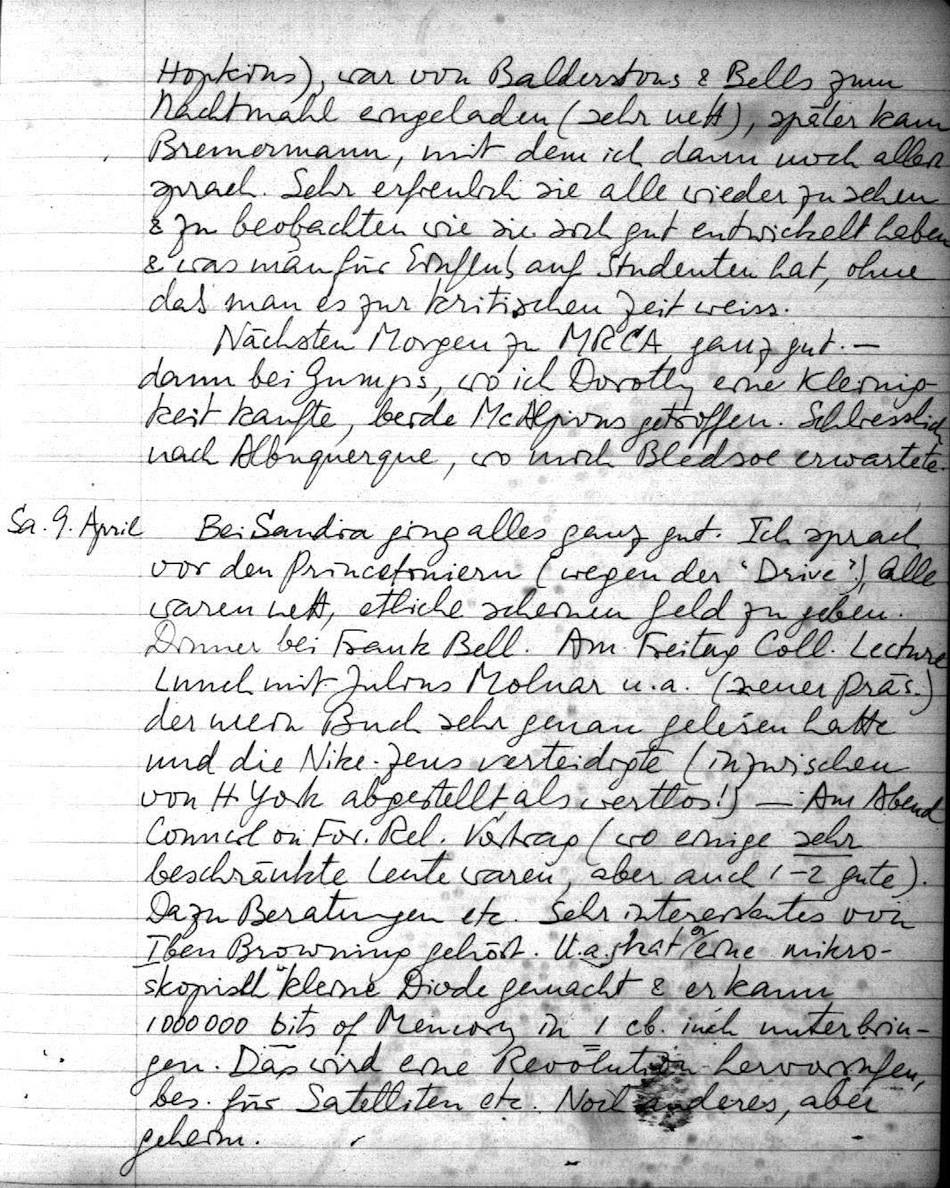 Hopkins), war von Balderstons & Bells zum
Nachtmahl eingeladen (sehr nett), später kam
Bremermann, mit dem ich dann noch allein
sprach. Sehr erfreulich sie alle wieder zu sehen
& zu beobachten wie sie sich gut entwickelt haben
& was man für Einfluß auf Studenten hat, ohne
daß man es zur kritischen Zeit weiss.
Nächsten Morgen zu MRCA ganz gut. —
dann bei Gumps, wo ich Dorothy eine Kleinig-
keit kaufte, beide McAlpins getroffen. Schliesslich
nach Albuquerque, wo mich Bledsoe erwartete.
Sa. 9. April Bei Sandia ging alles ganz gut. Ich sprach
vor den Princetoniern (wegen der 'Drive'), alle
waren nett, etliche scheinen Geld zu geben.
Dinner bei Frank Bell. Am Freitag Coll. Lecture
Lunch mit Julius Molnar u.a. (neuer Präs.)
der mein Buch sehr genau gelesen hatte
und die Nike-Zeus verteidigte (inzwischen
von H York abgestellt als wertlos!) — Am Abend
Council on For. Rel. Vortrag (wo einige sehr
beschränkte Leute waren, aber auch 1–2 gute).
Dazu Beratungen etc. Sehr interessantes von
Iben Browning gehört. U.a. hat er eine mikro-
skopisch kleine Diode gemacht & er kann
1000000 bits of Memory in 1 cb. inch unterbrin-
gen. Das wird eine Revolution hervorrufen,
bes. für Satelliten etc. Noch anderes, aber
geheim.